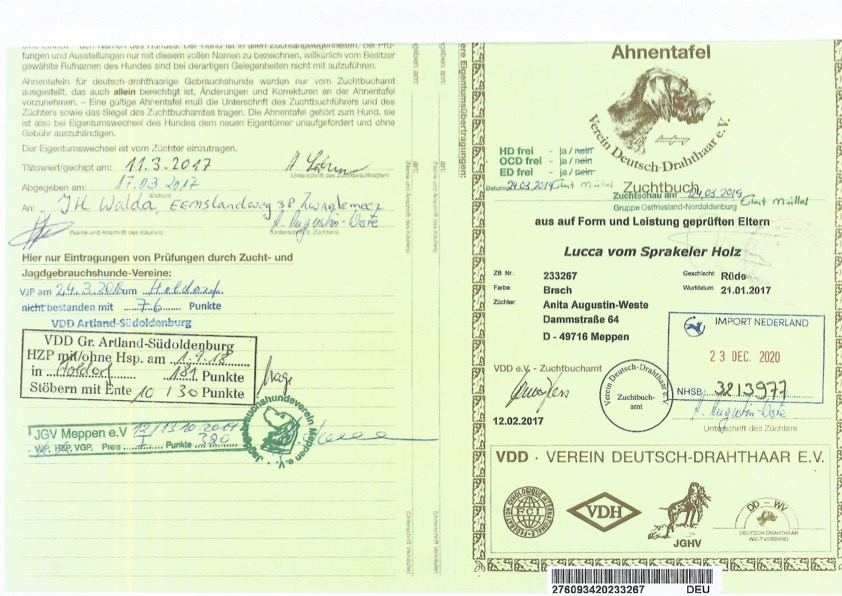 fungen und Ausstellungen nur mit diesem vollen Namen zu bezeichnen, willkürlich vom Besitzer
gewählte Rufnamen des Hundes sind bei derartigen Gelegenheiten nicht mit aufzuführen.
Ahnentafeln für deutsch-drahthaarige Gebrauchshunde werden nur vom Zuchtbuchamt
ausgestellt, das auch allein berechtigt ist, Änderungen und Korrekturen an der Ahnentafel
vorzunehmen. – Eine gültige Ahnentafel muß die Unterschrift des Zuchtbuchführers und des
Züchters sowie das Siegel des Zuchtbuchamtes tragen. Die Ahnentafel gehört zum Hund, sie
ist also bei Eigentumswechsel des Hundes dem neuen Eigentümer unaufgefordert und ohne
Gebühr auszuhändigen.
Der Eigentumswechsel ist vom Züchter einzutragen.
Tätowiert/gechipt am: 11.3.2017
Abgegeben am: 17.03 2017
An: JH Walda, Eemslandweg 38
A. Augustin-Weste
(Name und Anschrift des Käufers)
(Unterschrift d. Züchters)
Hier nur Eintragungen von Prüfungen durch Zucht- und
Jagdgebrauchshunde-Vereine:
VJP am 24.3.2018 um Holdorf
nicht bestanden mit 76 Punkte
VDD Artland-Südoldenburg
VDD Gr. Artland-Südoldenburg
HZP mit/ohne Hsp. am 1.9.18
in Holdorf 181 Punkte
Stöbern mit Ente 10 / 30 Punkte
JGV Meppen e.V
VJP, HZP, VGP, Preis I Punkte
Jagdgebrauchshundeverein Meppen e.V.
Ahnentafel
Verein Deutsch-Drahthaar e.V.
HD frei - ja / nein
OCD frei - ja / nein
ED frei - ja / nein
Datum 24.03.2019
Zuchtbuch
Zuchtschau am 24.03.2019
Gruppe Ostfriesland-Nordoldenburg
aus auf Form und Leistung geprüften Eltern
Lucca vom Sprakeler Holz
ZB Nr.: 233267 Geschlecht Rüde
Farbe: Brsch Wurfdatum 21.01.2017
Züchter: Anita Augustin-Weste
Dammstraße 64
D - 49716 Meppen
IMPORT NEDERLAND
23 DEC. 2020
NHSB 3213977
VDD e.V. - Zuchtbuchamt
Verein Deutsch-Drahthaar e.V.
Zuchtbuch-
amt
A. Augustin-Weste
Unterschrift des Züchters
12.02.2017
VDD - VEREIN DEUTSCH-DRAHTHAAR E.V.
FEDERATION CYNOLOGIQUE INTERNATIONALE
FCI
VDH
JGHV
DD - WV
DEUTSCH-DRAHTHAAR
WELTVERBAND
276093420233267 DEU